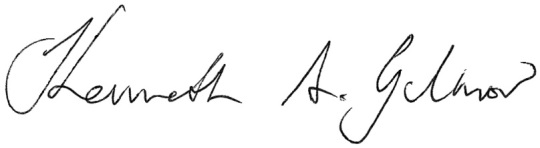 Kenneth A. Gilmor